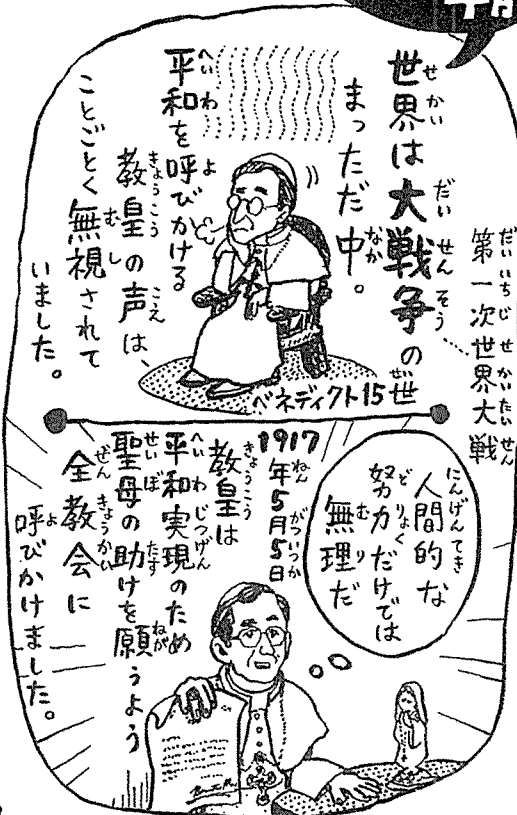 世界は大戦争の
まっただ中。
第一次世界大戦
平和を呼びかける
教皇の声は、
ことごとく無視されて
いました。
ベネディクト15世
人間的な
努力だけでは
無理だ
1917年5月5日
教皇は
平和実現のため
聖母の助けを願うよう
全教会に
呼びかけました。